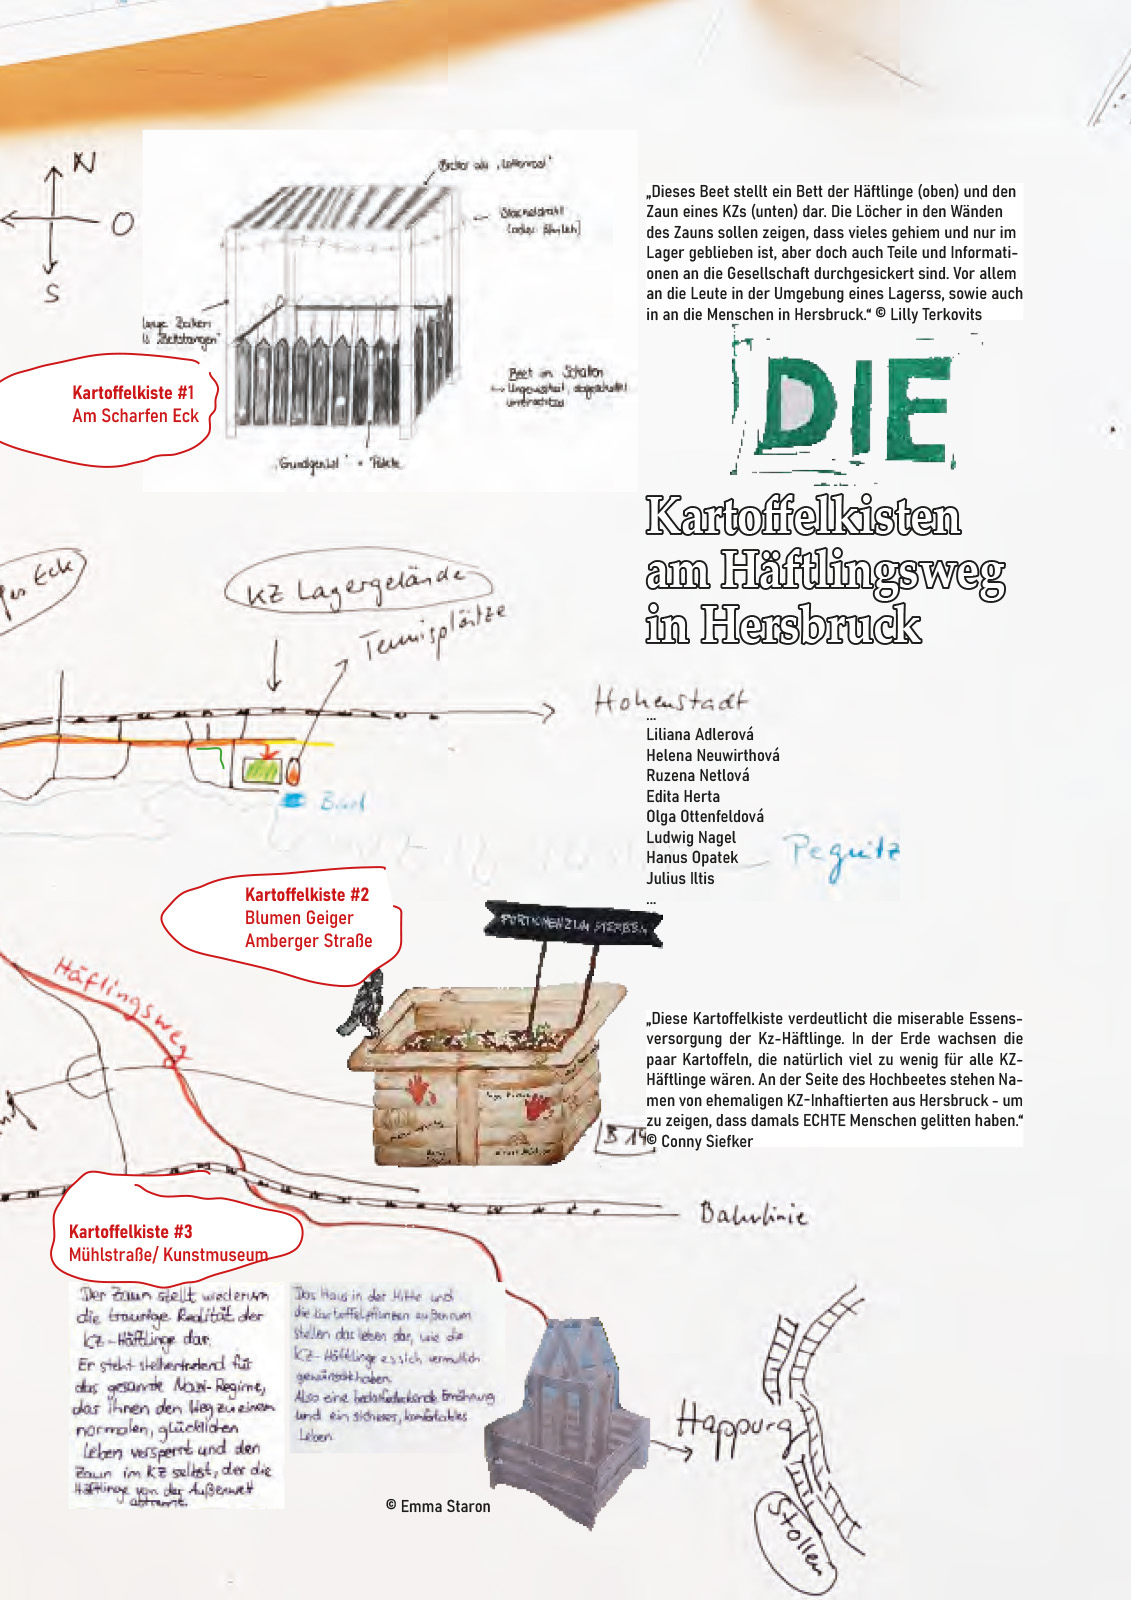 N
O
S
Bretter als „Lattenrost"
Stacheldraht
(oder ähnlich)
lange Balken
als "Bettstangen"
„Grundgerüst" = Palette
Beet im Schatten
„Dieses Beet stellt ein Bett der Häftlinge (oben) und den
Zaun eines KZs (unten) dar. Die Löcher in den Wänden
des Zauns sollen zeigen, dass vieles gehiem und nur im
Lager geblieben ist, aber doch auch Teile und Informati-
onen an die Gesellschaft durchgesickert sind. Vor allem
an die Leute in der Umgebung eines Lagerss, sowie auch
in an die Menschen in Hersbruck.“ © Lilly Terkovits
Kartoffelkiste #1
Am Scharfen Eck
DIE
Kartoffelkisten
am Häftlingsweg
in Hersbruck
Eck
KZ Lagergelände
Tennisplätze
Hohenstadt
Bad
Pegnitz
...
Liliana Adlerová
Helena Neuwirthová
Ruzena Netlová
Edita Herta
Olga Ottenfeldová
Ludwig Nagel
Hanus Opatek
Julius Iltis
...
Kartoffelkiste #2
Blumen Geiger
Amberger Straße
PORTIONEN ZUM STERBEN
Häflingsweg
B 14
„Diese Kartoffelkiste verdeutlicht die miserable Essens-
versorgung der Kz-Häftlinge. In der Erde wachsen die
paar Kartoffeln, die natürlich viel zu wenig für alle KZ-
Häftlinge wären. An der Seite des Hochbeetes stehen Na-
men von ehemaligen KZ-Inhaftierten aus Hersbruck - um
zu zeigen, dass damals ECHTE Menschen gelitten haben.“
© Conny Siefker
Bahnlinie
Kartoffelkiste #3
Mühlstraße/ Kunstmuseum
Der Zaun stellt wiederum
die traurige Realität der
KZ-Häftlinge dar.
Er steht stellvertretend für
das gesamte Nazi-Regime,
das ihnen den Weg zu einem
normalen, glücklichen
Leben versperrt und den
Zaun im KZ selbst, der die
Häftlinge von der Außenwelt
abtrennt.
Das Haus in der Mitte und
die Kartoffelpflanzen außenrum
stellen das Leben dar, wie die
KZ-Häftlinge es sich vermutlich
gewünscht haben.
Also eine bedarfsdeckende Ernährung
und ein sicheres, komfortables
Leben.
© Emma Staron
Happurg
Stollen